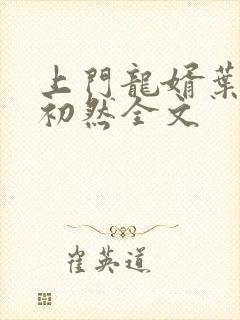 上門龍婿葉
初然全文
崔英道